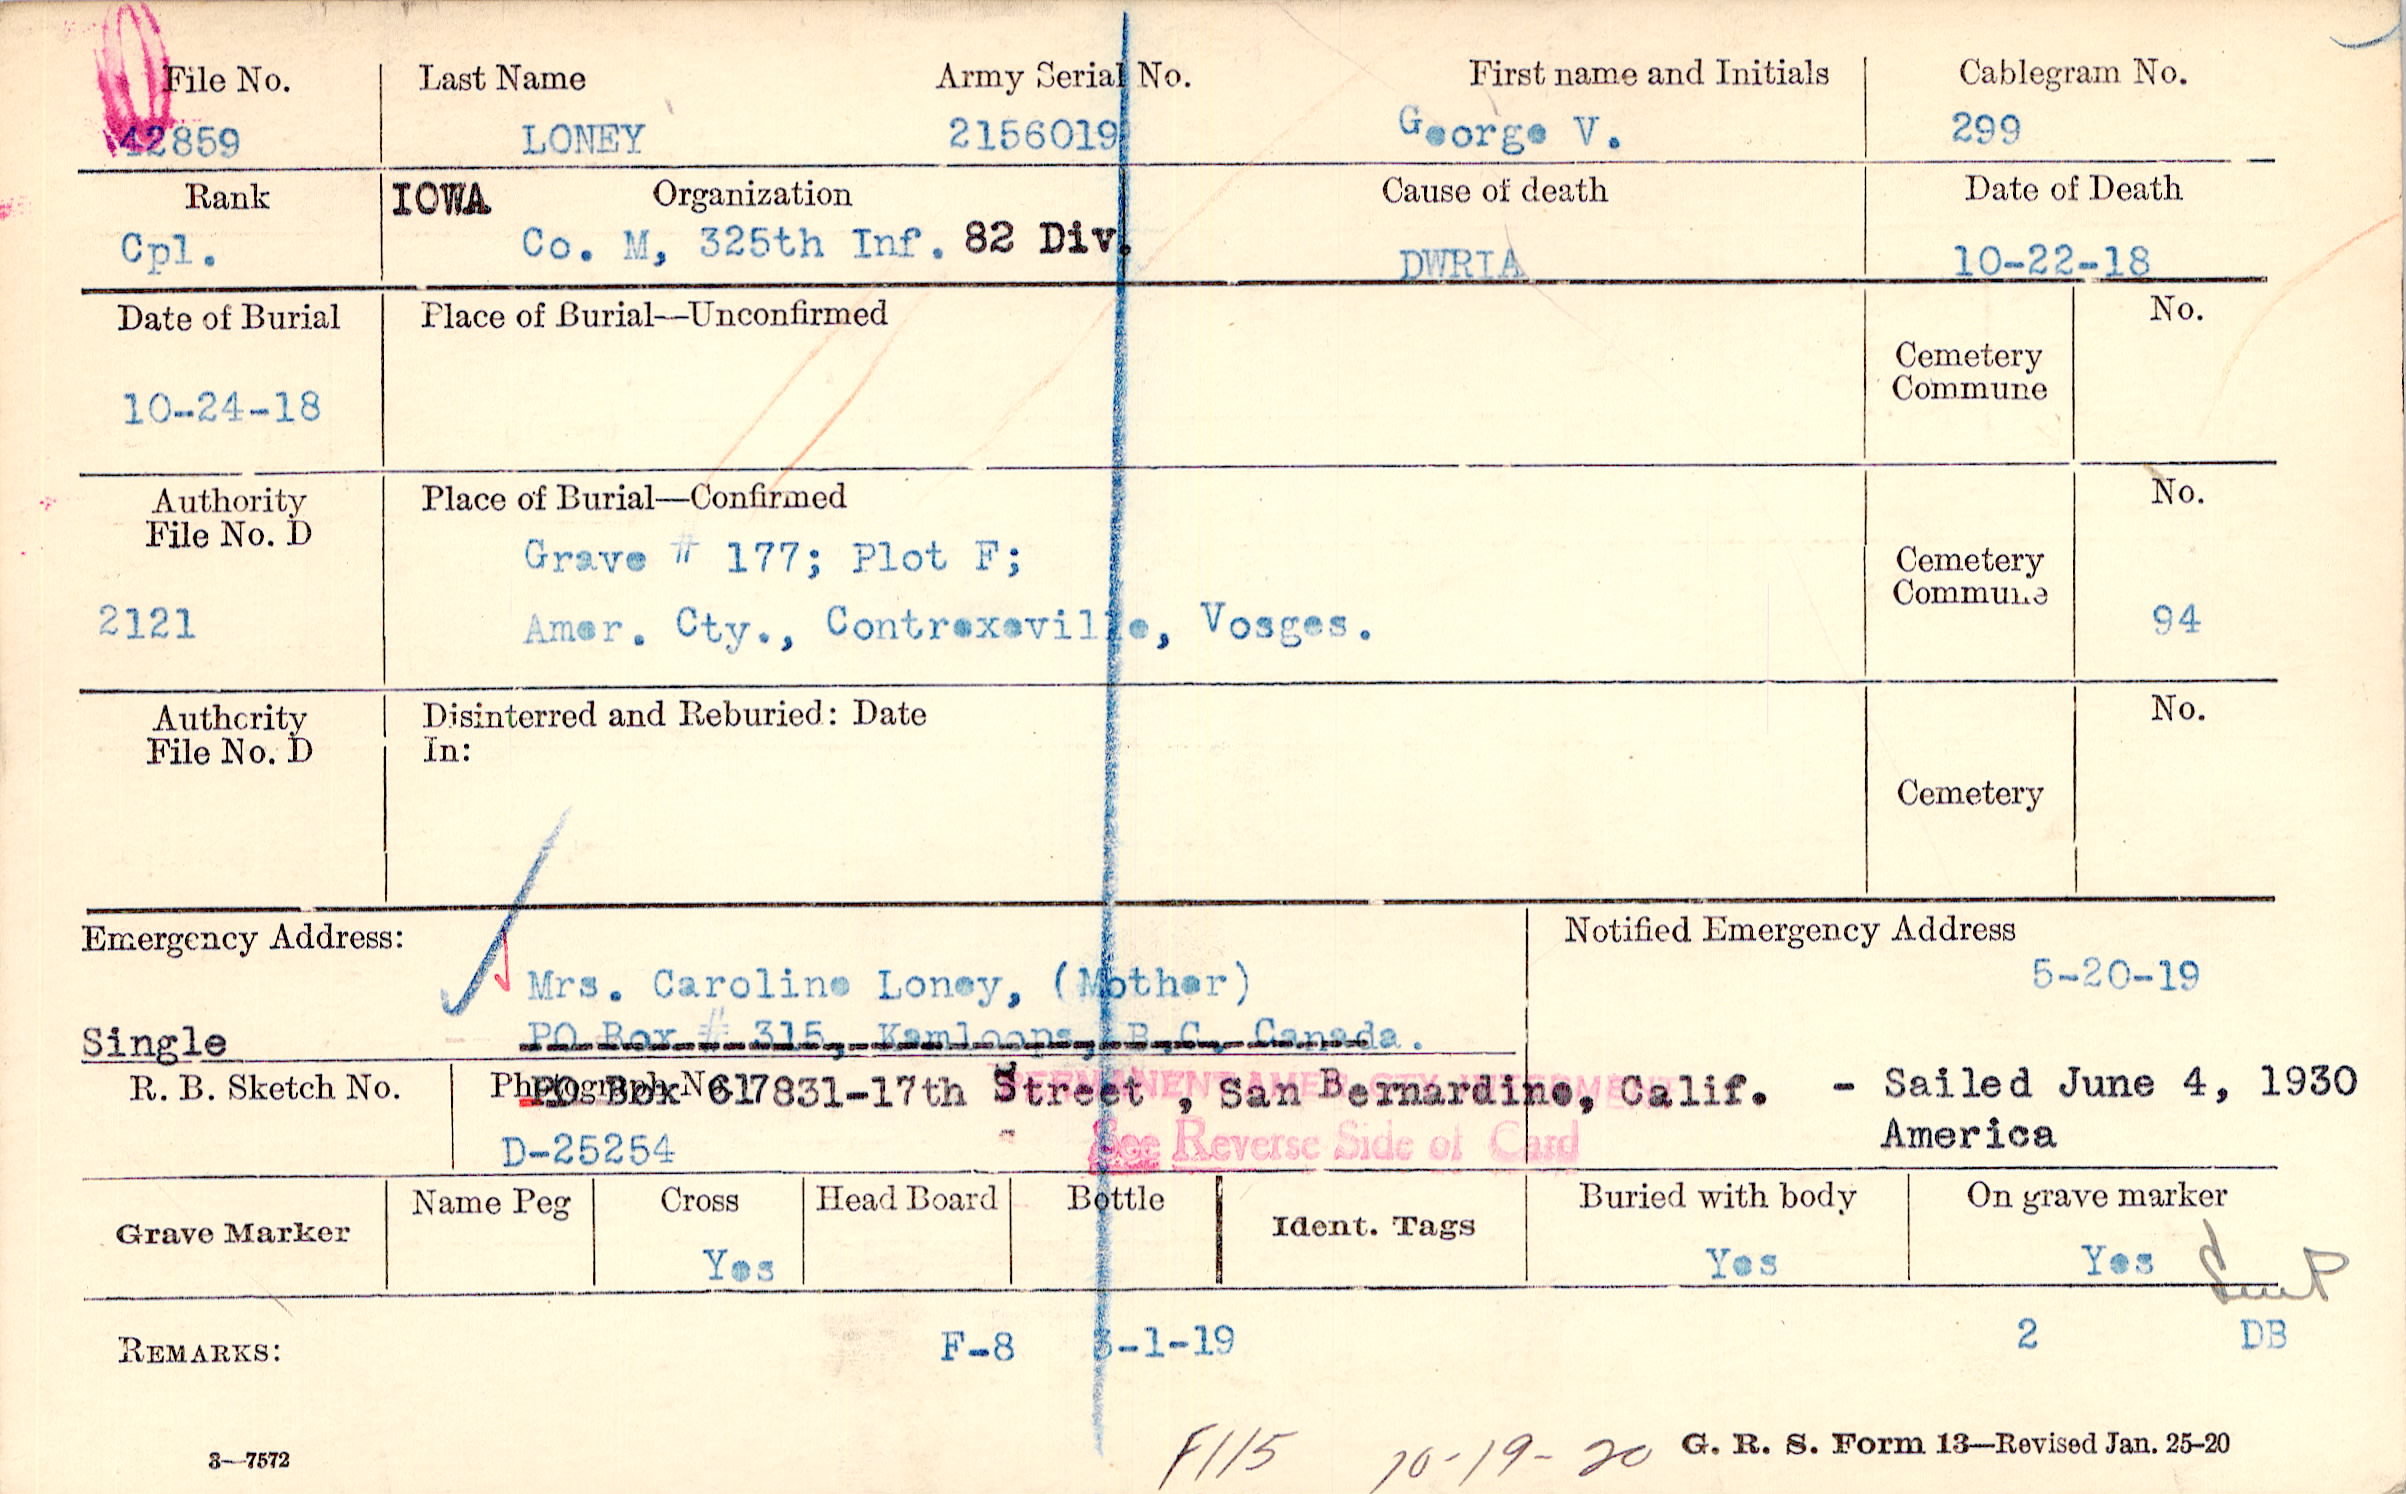 File No. Last Name Army Serial No. First name and Initials Cablegram No.
42859 LONEY 2156019 George V. 299
Rank IOWA Organization Cause of death Date of Death
Cpl. Co. M, 325th Inf. 82 Div. DWRIA 10-22-18
Date of Burial Place of Burial—Unconfirmed No.
Cemetery
Commune
10-24-18
Authority Place of Burial—Confirmed No.
File No. D
Grave # 177; Plot F; Cemetery
Commune
2121 Amer. Cty., Contrexeville, Vosges. 94
Authority Disinterred and Reburied: Date No.
File No. D In:
Cemetery
Emergency Address: Notified Emergency Address
Mrs. Caroline Loney, (Mother) 5-20-19
Single PO Box # 315, Kamloops, B.C. Canada.
R. B. Sketch No. Photograph No.
PO Box 617 831-17th Street, San Bernardino, Calif. - Sailed June 4, 1930
PERMANENT AMER. CTY. INTERMENT
D-25254 See Reverse Side of Card America
Grave Marker Name Peg Cross Head Board Bottle Ident. Tags Buried with body On grave marker
Yes Yes Yes
REMARKS: F-8 3-1-19 2 DB
F115 10-19-20
3—7572 G. R. S. Form 13—Revised Jan. 25-20